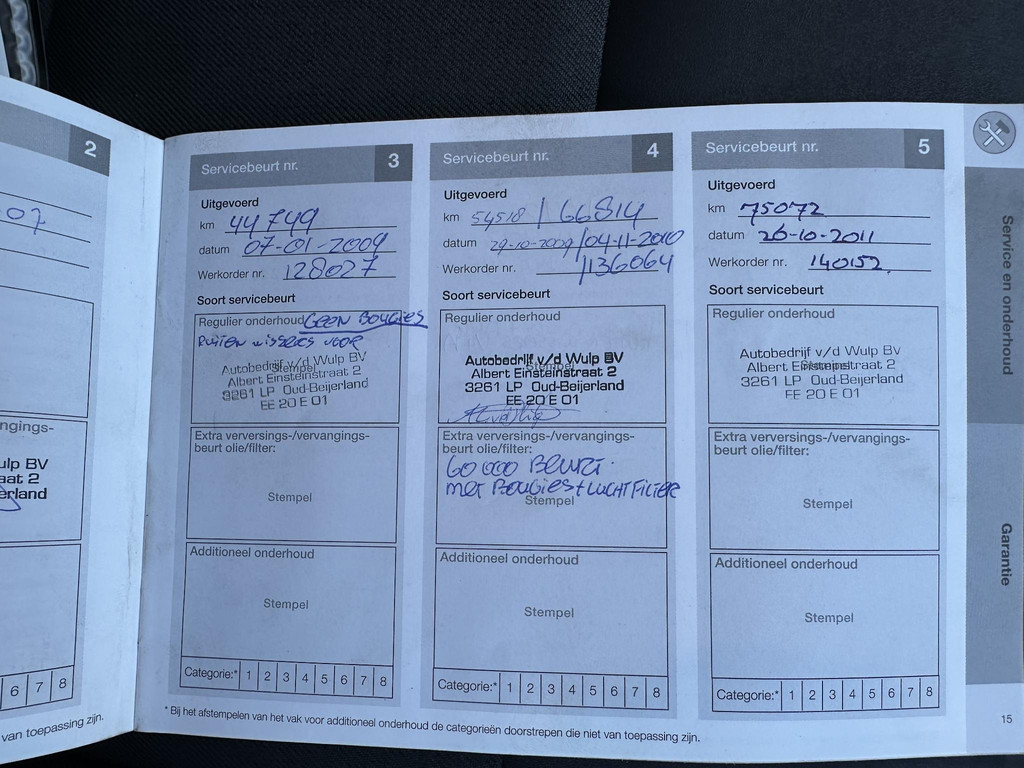 2
07
ngings-
ulp BV
aat 2
erland
6 7 8
van toepassing zijn.
Servicebeurt nr. 3
Uitgevoerd
km 44749
datum 07-01-2009
Werkorder nr. 128027
Soort servicebeurt
Regulier onderhoud GEEN BOUGIES
RUITEN WISSERS VOOR
Stempel
Autobedrijf v/d Wulp BV
Albert Einsteinstraat 2
3261 LP Oud-Beijerland
EE 20 E 01
Extra verversings-/vervangings-
beurt olie/filter:
Stempel
Additioneel onderhoud
Stempel
Categorie:* 1 2 3 4 5 6 7 8
Servicebeurt nr. 4
Uitgevoerd
km 54518 / 66814
datum 29-10-2009/04-11-2010
Werkorder nr. /136064
Soort servicebeurt
Regulier onderhoud
Stempel
Autobedrijf v/d Wulp BV
Albert Einsteinstraat 2
3261 LP Oud-Beijerland
EE 20 E 01
Extra verversings-/vervangings-
beurt olie/filter:
60 000 BEURT.
MET BOUGIES + LUCHTFILTER
Stempel
Additioneel onderhoud
Stempel
Categorie:* 1 2 3 4 5 6 7 8
Servicebeurt nr. 5
Uitgevoerd
km 75072
datum 26-10-2011
Werkorder nr. 140152
Soort servicebeurt
Regulier onderhoud
Stempel
Autobedrijf v/d Wulp BV
Albert Einsteinstraat 2
3261 LP Oud-Beijerland
EE 20 E 01
Extra verversings-/vervangings-
beurt olie/filter:
Stempel
Additioneel onderhoud
Stempel
Categorie:* 1 2 3 4 5 6 7 8
* Bij het afstempelen van het vak voor additioneel onderhoud de categorieën doorstrepen die niet van toepassing zijn.
Service en onderhoud
Garantie
15